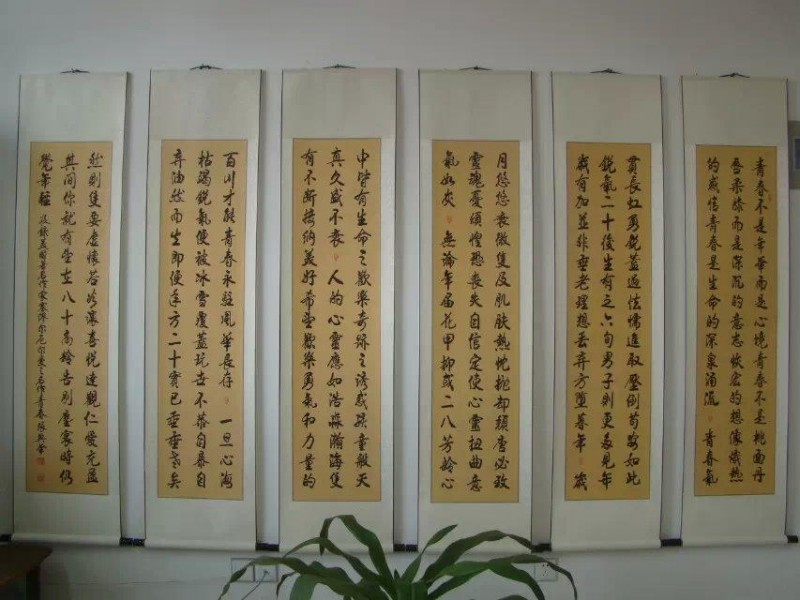 青春不是年華而是心境青春不是桃面丹
唇柔膝而是深沉的意志恢宏的想像熾熱
的感情青春是生命的深泉涌流 青春氣
貫長虹勇銳蓋過怯懦進取壓倒苟安如此
銳氣二十後生有之六旬男子則更多見年
歲有加並非垂老理想丢弃方墮暮年 歲
月悠悠衰微隻及肌膚熱忱拋却頹唐必致
靈魂憂煩惶恐喪失自信定使心靈扭曲意
氣如灰 無論年屆花甲抑或二八芳齡心
中皆有生命之歡樂奇跡之誘惑孩童般天
真久盛不衰 人的心靈應如浩淼瀚海隻
有不斷接納美好希望歡樂勇氣和力量的
百川才能青春永駐風華長存 一旦心海
枯竭銳氣便被冰雪覆蓋玩世不恭自暴自
弃油然而生即便年方二十實已垂垂老矣
然則隻要虛懷若谷讓喜悅達觀仁愛充盈
其間你就有望在八十高齡告別塵寰時仍
覺年輕 錄美國著名作家塞繆尔厄尔曼之名作青春